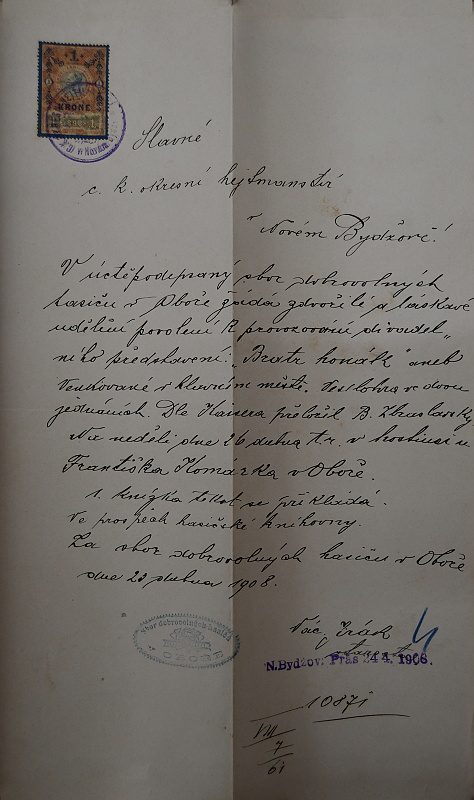 1
KRONE
Slavné
c. k. okresní hejtmanství
v Novém Bydžově!
V úctě podepsaný sbor dobrovolných
hasičů v Oboře žádá zdvořile a laskavé
udělení povolení k provozování divadel„
ního představení: „Bratr honák" aneb
Venkované v hlavním městě. Veselohra ve dvou
jednáních. Dle Kaisera přeložil B. Zbraslavský
Na neděli dne 26 dubna t. r. v hostinci u
Františka Komárka v Oboře.
1. knížka tekst se přikládá.
Ve prospěch hasičské knihovny.
Za sbor dobrovolných hasičů v Oboře
dne 23 dubna 1908.
Sbor dobrovolných hasičů
OBOŘE
Vác.
starosta
N.Bydžov. Präs 24 4. 1908.
10871
VIII
7
61